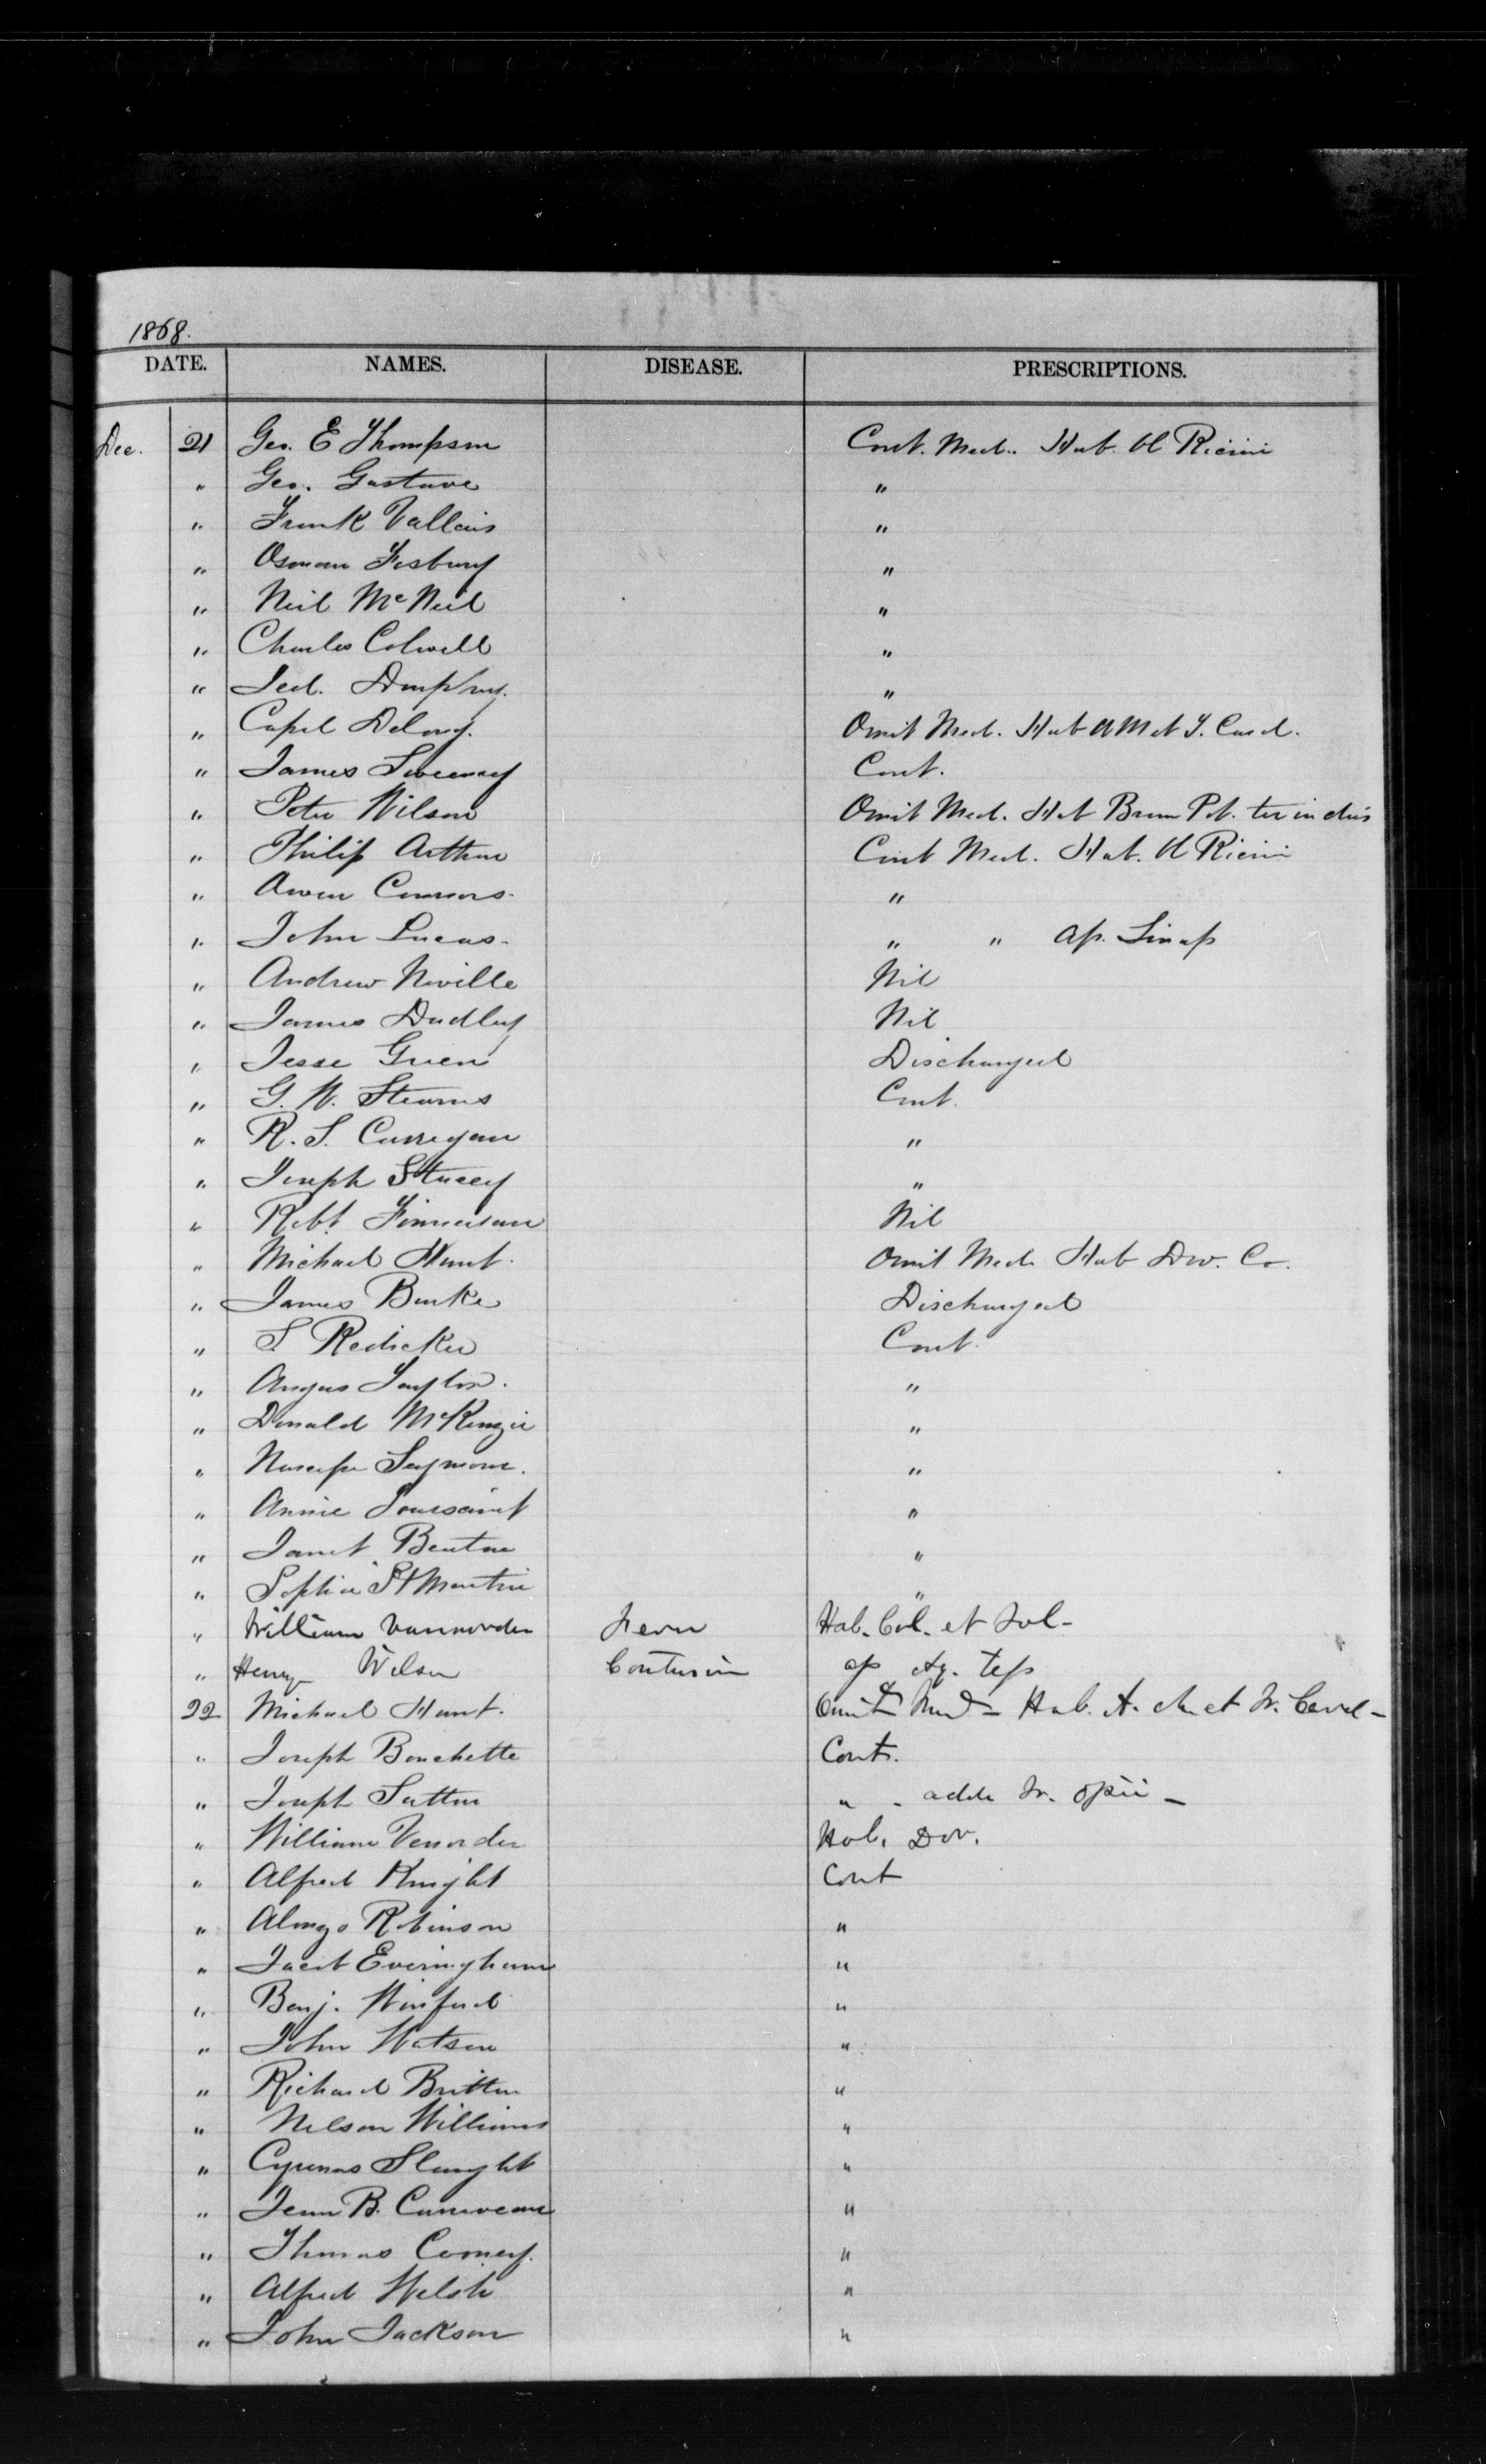 1868.
DATE. NAMES. DISEASE. PRESCRIPTIONS.
Dec. 21 Geo. E Thompson Cont. Med.. Hab. Ol Ricini
" Geo. Gustave "
" Frank Vallais "
" Osman Fosbury "
" Neil McNeil "
" Charles Colwell "
" Jed. "
" Capel Delong. Omit Med. Hab A M et T. Card.
" James Sweeney Cont.
" Peter Wilson Omit Med. Hab Brom Pot. ter in dies
" Philip Arthur Cont Med. Hab. Ol Ricini
" Owen Connors. "
" John Lucas. " " Ap. Sinap
" Andrew Neville Nil
" James Dudley Nil
" Jesse Green Discharged
" G. W. Stearns Cont.
" R. S. Curregan "
" Joseph Stucey "
" Robt. Nil
" Michael Hunt. Omit Med. Hab Dov. Co.
" James Burke Discharged
" S. Redicker Cont.
" Angus Taylor. "
" Donald McKenzie "
" Seymour. "
" Annie Toussaint "
" Janet Benton "
" Sophia St Martin "
" William Vannorder Fever Hab. Col. et Jul-
" Henry Wilson Contusion ap Aq. Tep
22 Michael Hunt. Omit Med - Hab. A. M et Tr. Card -
" Joseph Bouchette Cont.
" Joseph Sutton " - adde Tr. Opii -
" William Venorder Hab. Dov.
" Alfred Knight Cont
" Alonzo Robinson "
" Jacob Everingham "
" Benj. Winford "
" John Watson "
" Richard Britton "
" Nelson Williams "
" Cyrenus Slaught "
" Jean B. Caniveau "
" Thomas Comey. "
" Alfred Welsh "
" John Jackson "